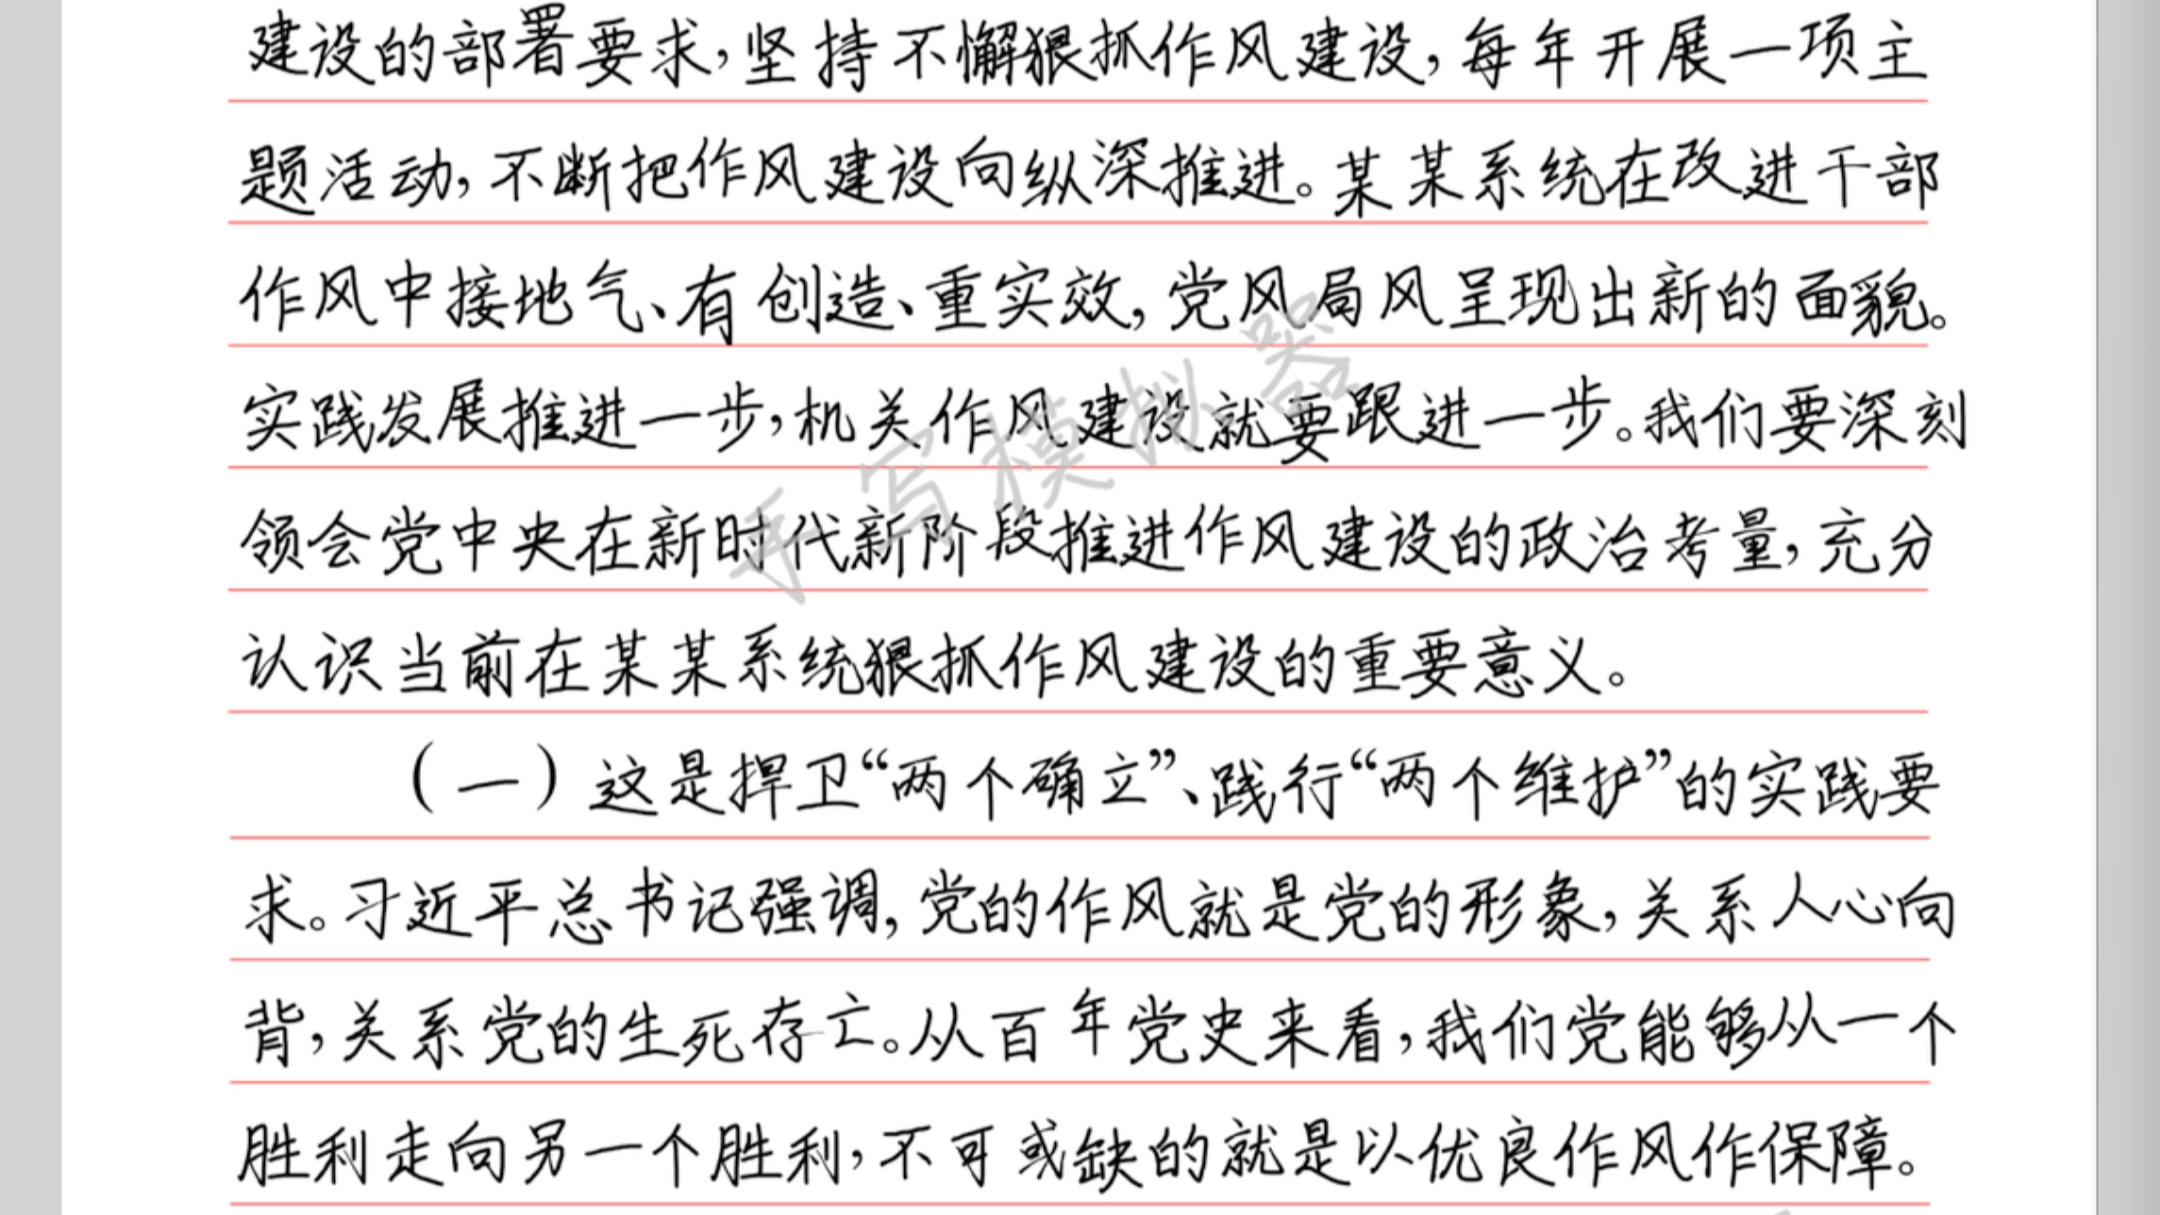 建设的部署要求,坚持不懈狠抓作风建设,每年开展一项主
题活动,不断把作风建设向纵深推进。某某系统在改进干部
作风中接地气、有创造、重实效,党风局风呈现出新的面貌。
实践发展推进一步,机关作风建设就要跟进一步。我们要深刻
领会党中央在新时代新阶段推进作风建设的政治考量,充分
认识当前在某某系统狠抓作风建设的重要意义。
(一)这是捍卫“两个确立”、践行“两个维护”的实践要
求。习近平总书记强调,党的作风就是党的形象,关系人心向
背,关系党的生死存亡。从百年党史来看,我们党能够从一个
胜利走向另一个胜利,不可或缺的就是以优良作风作保障。
手写模拟器